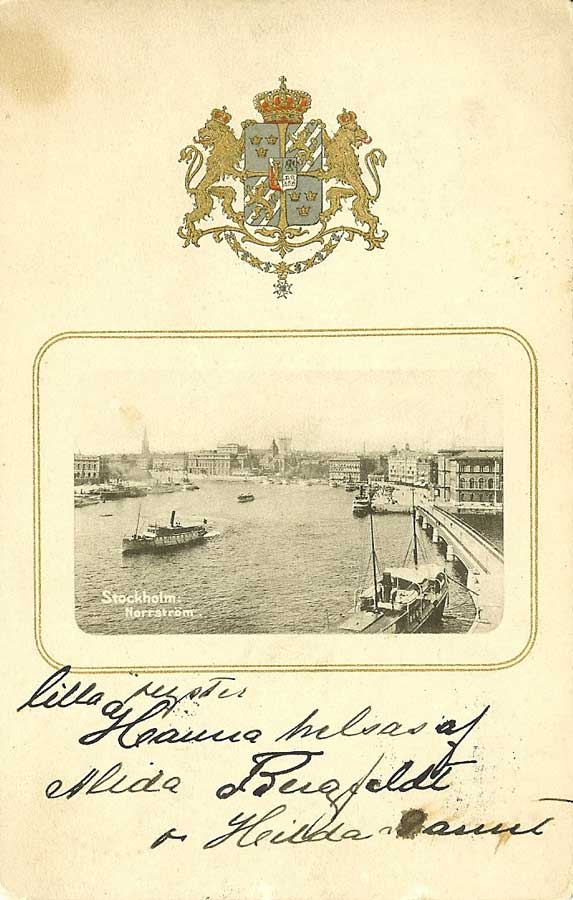 Stockholm:
Norrström.
lilla syster
Hanna helsas af
Alida Bergfeldt
o Hilda